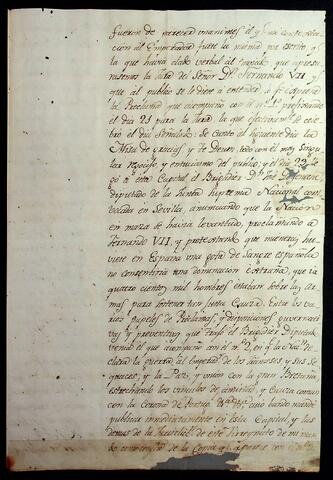 fueron de parecer unanimes el q.e la contextacion
al Emperador fuese la misma por escrito q.e
la que havia dado verbal al enviado que apresurasemos
la Jura del Señor D.n Fernando VII y
que al publico se le diese a entender
la Proclama que acompaño con el n.o 1.o prefixando
el dia 21 para la Jura la que efectivam.te se celebró
el dia señalado. Se cantó al siguiente dia la
Misa de gracias, y de Deum, todo con el mas singular
regocijo, y entusiasmo del publico; y el dia 22
gó a esta Capital el Brigadier D.n José Goyeneche
diputado de la Junta suprema Nacional convocada
en Sevilla, anunciando que la Nacion
en masa se havia levantado, proclamando a
Fernando VII, y protestando que mientras huviese
en España una gota de Sangre española
no consentiria una dominacion extraña, que ya
quatro cientos mil hombres estaban sobre las armas
para sostener tan justa Causa. Entre los varios
papeles de Proclamas, y disposiciones guvernativas
y preventivas que trajo el Brigadier Diputado
venia el que acompaño con el n.o 2, en q.e la Nac.n declara
la guerra al Emper.or de los franceses y sus
y la Paz, y union con la gran Bretaña,
estrechando los vinculos de amistad, y Causa comun
con la Corona de Portug.l cuio bando mandé
publicar inmediatamente en esta Capital, y las
demas de la de este Virreynato de mi mando
de la Copia q.e aparece con el n.o